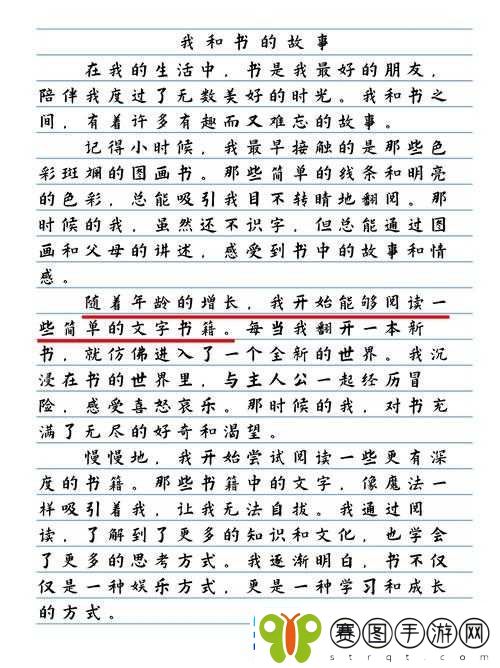 我和书的故事
在我的生活中，书是我最好的朋友，
陪伴我度过了无数美好的时光。我和书之
间，有着许多有趣而又难忘的故事。
记得小时候，我最早接触的是那些色
彩斑斓的图画书。那些简单的线条和明亮
的色彩，总能吸引我目不转睛地翻阅。那
时候的我，虽然还不识字，但总能通过图
画和父母的讲述，感受到书中的故事和情
感。
随着年龄的增长，我开始能够阅读一
些简单的文字书籍。每当我翻开一本新
书，就仿佛进入了一个全新的世界。我沉
浸在书的世界里，与主人公一起经历冒
险，感受喜怒哀乐。那时候的我，对书充
满了无尽的好奇和渴望。
慢慢地，我开始尝试阅读一些更有深
度的书籍。那些书籍中的文字，像魔法一
样吸引着我，让我无法自拔。我通过阅
读，了解到了更多的知识和文化，也学会
了更多的思考方式。我逐渐明白，书不仅
仅是一种娱乐方式，更是一种学习和成长
的方式。
赛图手游网
strqt.com